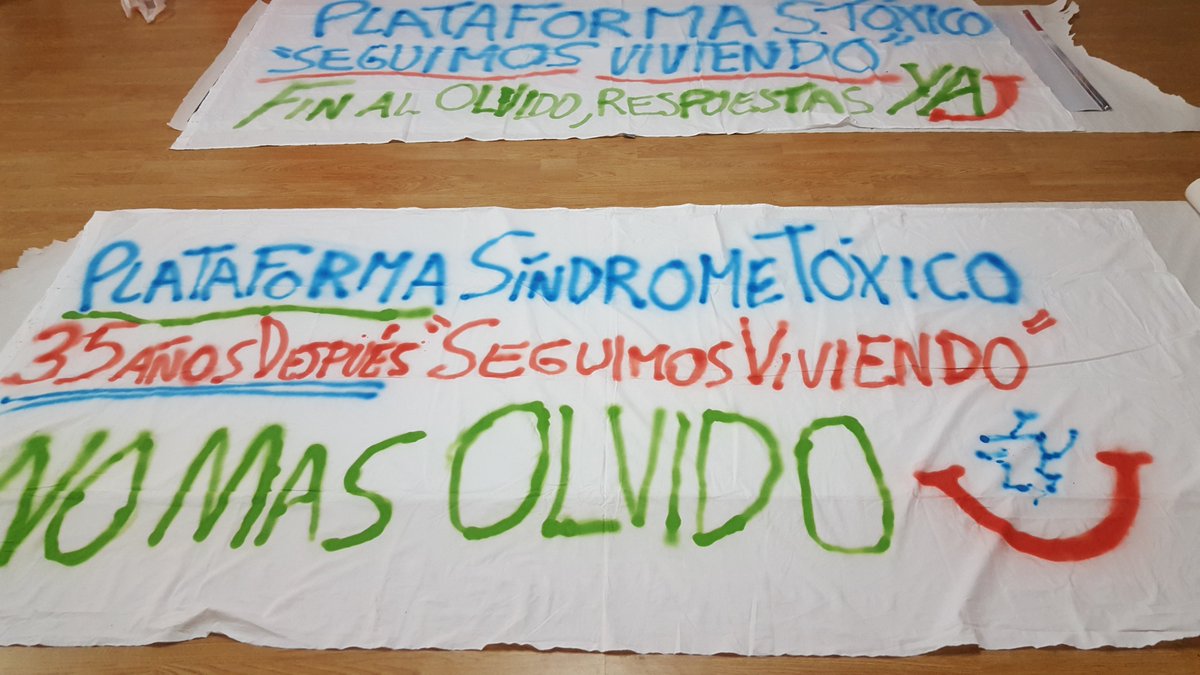 PLATAFORMA S. TÓXICO
"SEGUIMOS VIVIENDO"
FIN AL OLVIDO, RESPUESTAS YA
PLATAFORMA SÍNDROME TÓXICO
35 AÑOS DESPUÉS "SEGUIMOS VIVIENDO"
NO MAS OLVIDO